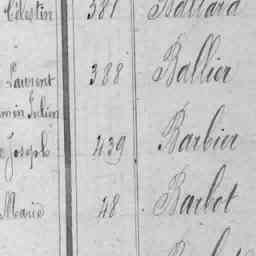 Célestin 381 Ballard
Laurent 388 Ballier
Julien
Joseph 439 Barbier
Marie 48 Barbot